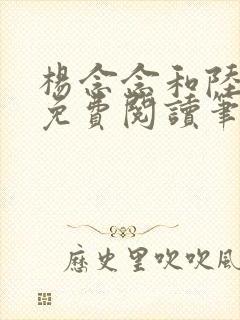 楊念念和陸
免費閱讀筆
歷史里吹吹風